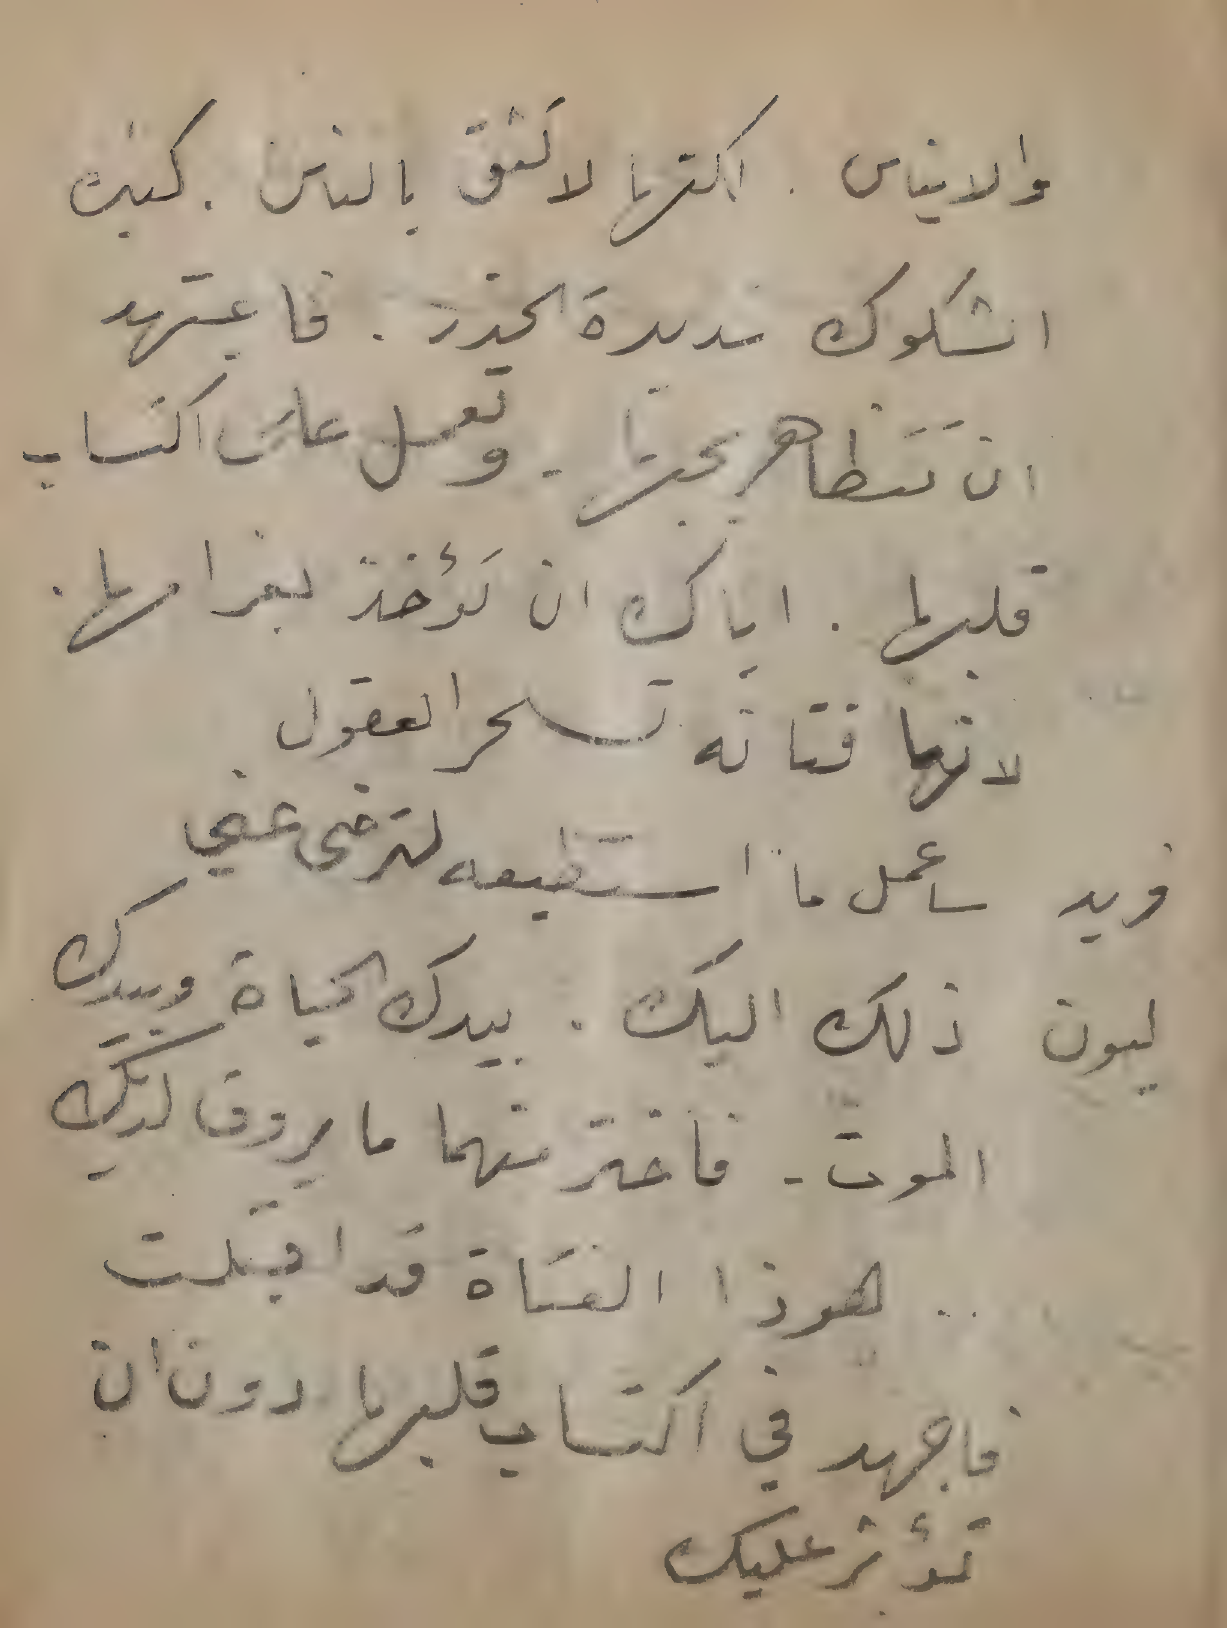 والايناس . لكنها لا تثق بالناس . كثيرة
الشكوك شديدة الحذر . فاجتهد
ان تتظاهر بحبها - وتعمل على اكتساب
قلبها . اياك ان تؤخذ بغرامها .
لانها فتانه تسحر العقول
فريد ساعمل ما استطيعه لترضى عني
ليون ذلك اليك . بيدك الحياة وبيدك
الموت - فاختر منهما ما يروق لديك
.. هوذا الفتاة قد اقبلت
فاجهد في اكتساب قلبها دون ان
تؤثر عليك